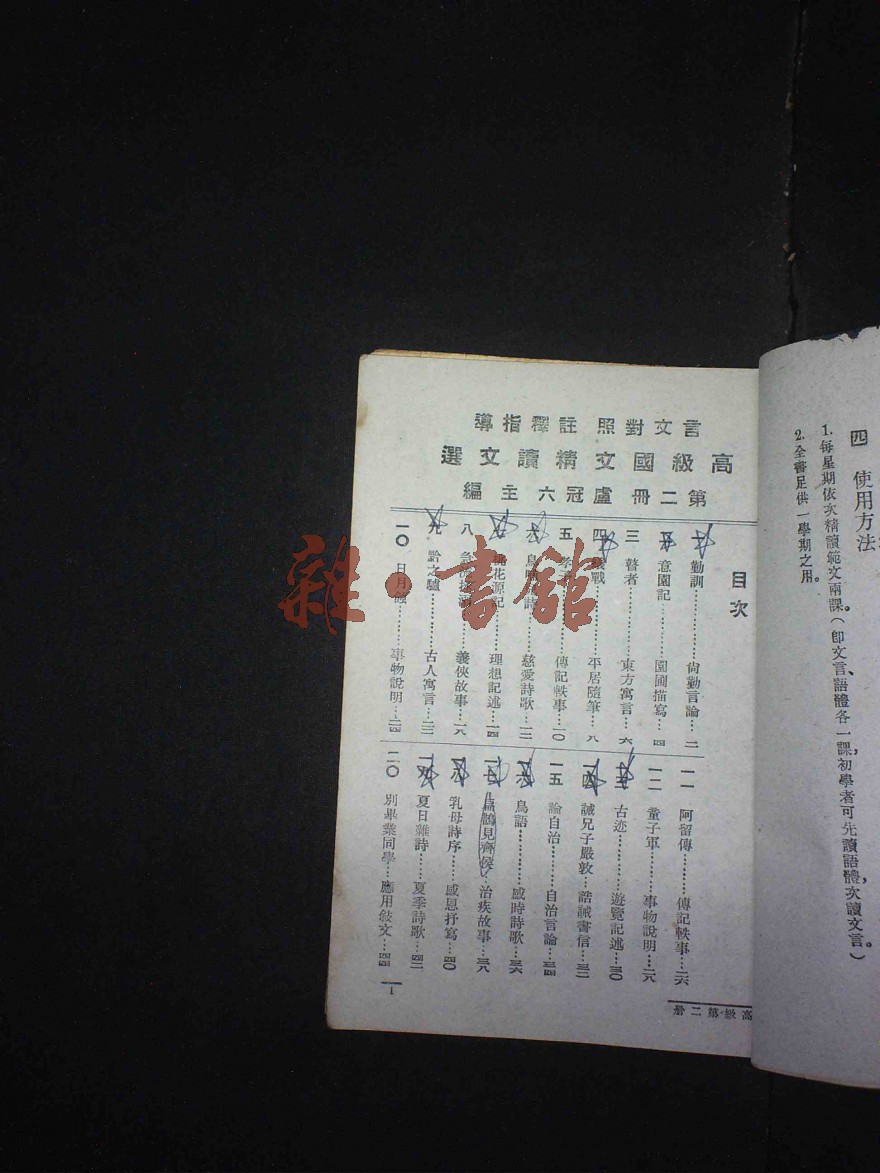 四 使用方法
1. 每星期依次精讀範文兩課。（即文言、語體各一課，初學者可先讀語體，次讀文言。）
2. 全書足供一學期之用。
言文對照 註釋指導
高級國文精讀文選
第二冊 盧冠六主編
目次
一 勤訓……尙勤言論…二
二 意園記……園圃描寫…四
三 瞽者……東方寓言…六
四 戰……平居隨筆…八
五 孝……傳記軼事…一〇
六 鳥 詩……慈愛詩歌…一二
七 桃花源記……理想記述…一四
八 急……義俠故事…一八
九 黔之驢……古人寓言…二二
一〇 日月蝕……事物說明…二四
一一 阿留傳……傳記軼事…二六
一二 童子軍……事物說明…二八
一三 古迹……遊覽記述…三〇
一四 誡兄子嚴敦…誥誡書信…三二
一五 論自治……自治言論…三四
一六 鳥語……感時詩歌…三六
一七 扁鵲見齊侯…治疾故事…三八
一八 乳母詩序……感恩抒寫…四〇
一九 夏日雜詩……夏季詩歌…四二
二〇 別畢業同學…應用敍文…四四
1
高級第二册
雜·書館